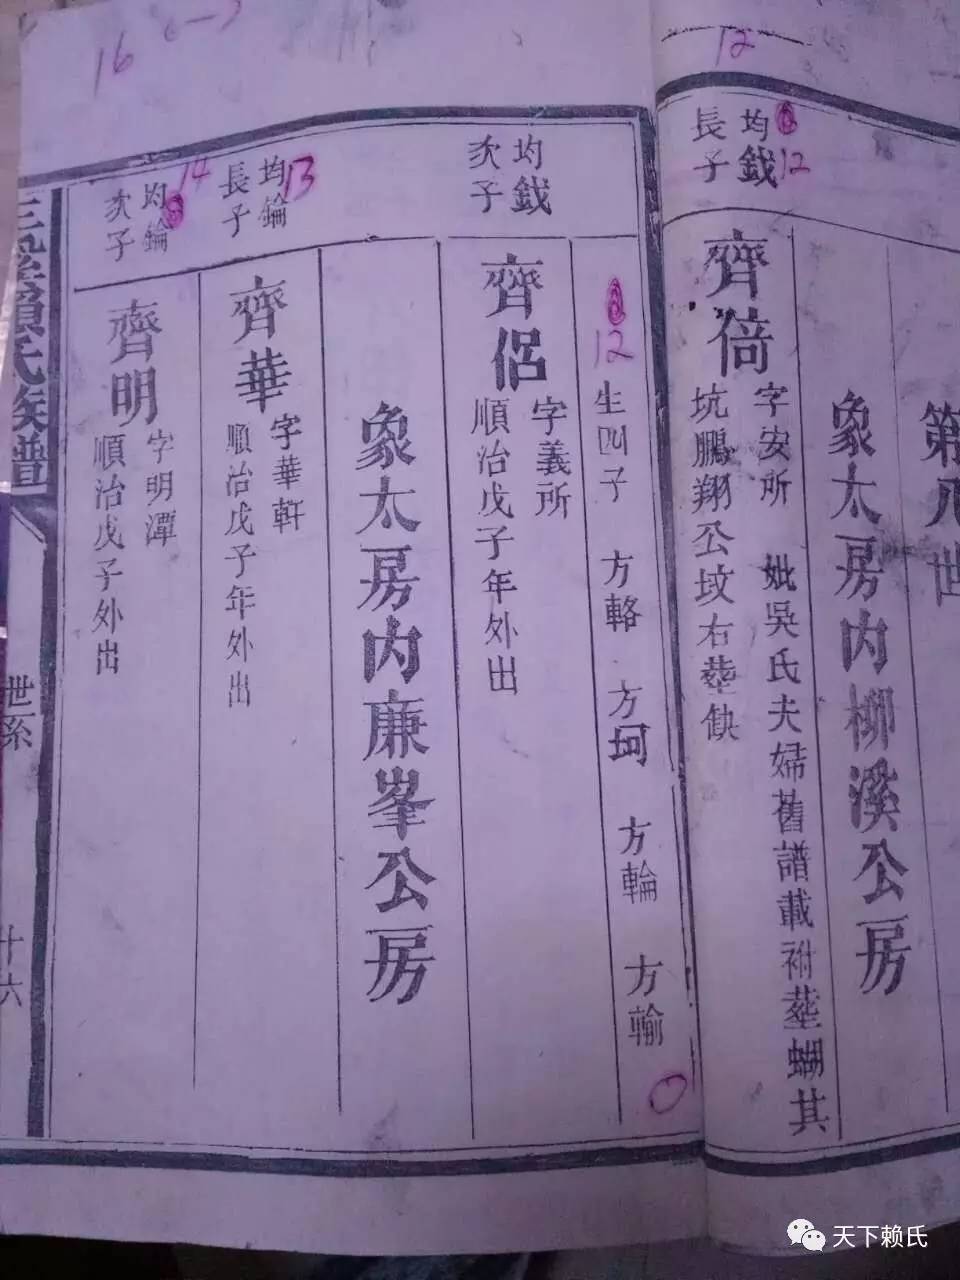 12
第八世
象太房內柳溪公房
均鉞
長子
12
齊倚
字安所 妣吳氏夫婦舊譜載祔塟蝴其
坑鵬翔公坟右塟缺
12
生四子 方輅 方珂 方輪 方輸
均鉞
次子
齊侶
字義所
順治戊子年外出
象太房內廉峯公房
均錀
長子
13
齊華
字華軒
順治戊子年外出
均錀
次子
14
齊明
字明潭
順治戊子年外出
賴氏族譜
世系
十六
16
天下赖氏